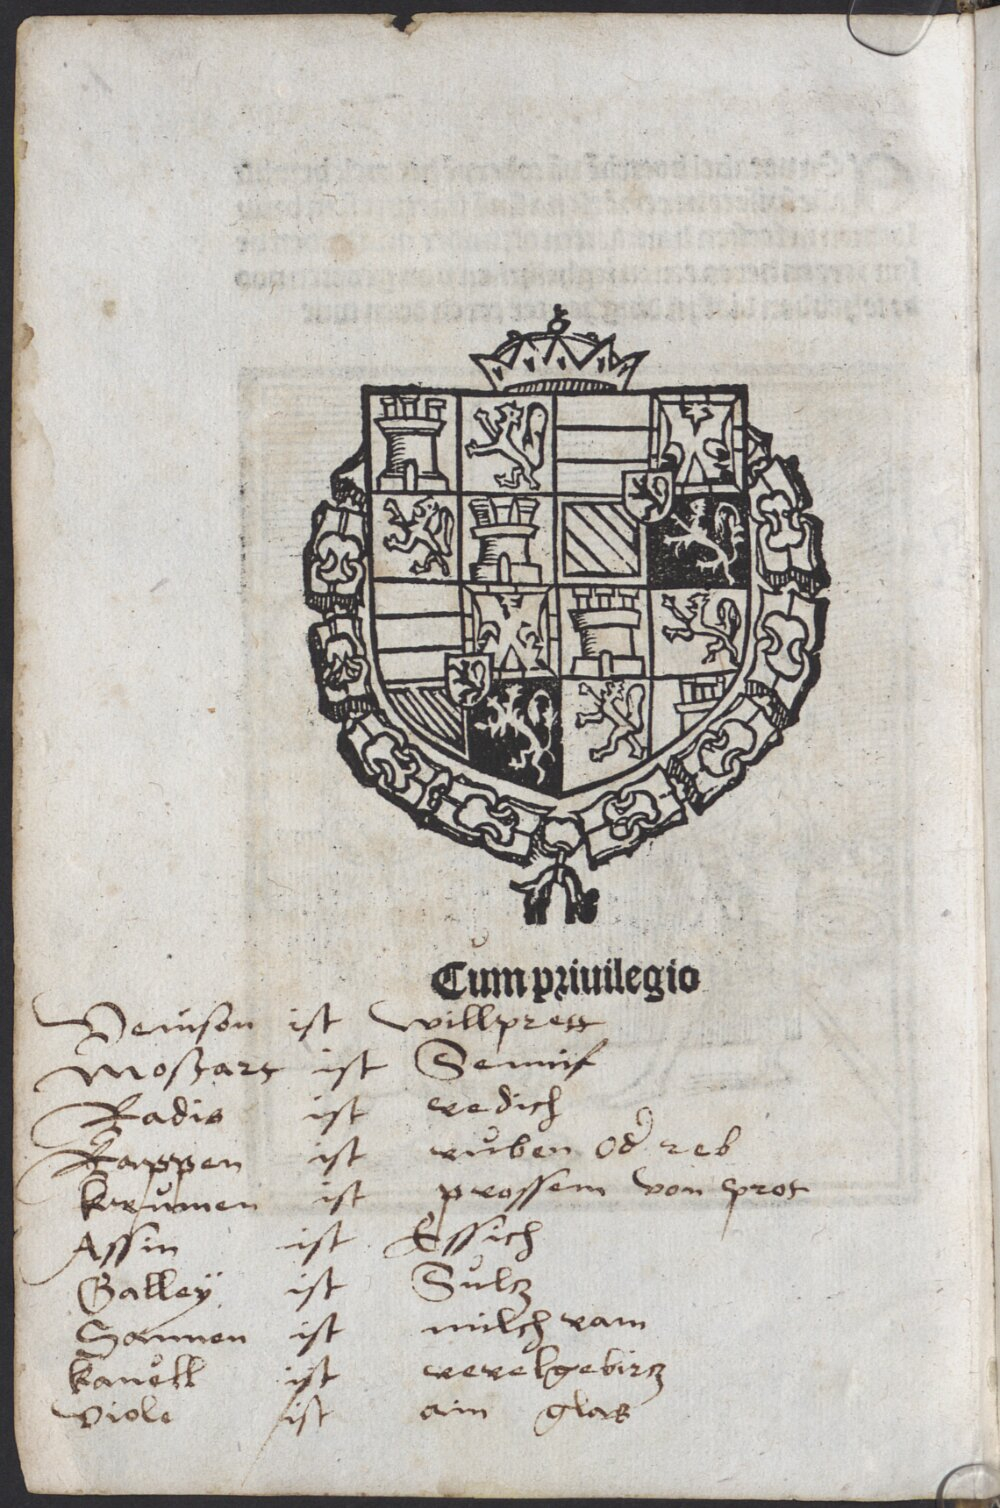 Cum priuilegio
Venison ist willprett
Mostart ist Sennif
Radis ist redich
Rappen ist ruben od reb
krumen ist prossem von prot
Assin ist Essich
Galley ist Sultz
Sannen ist milch ram
kanell ist rerelgebirtz
viole ist ain glas